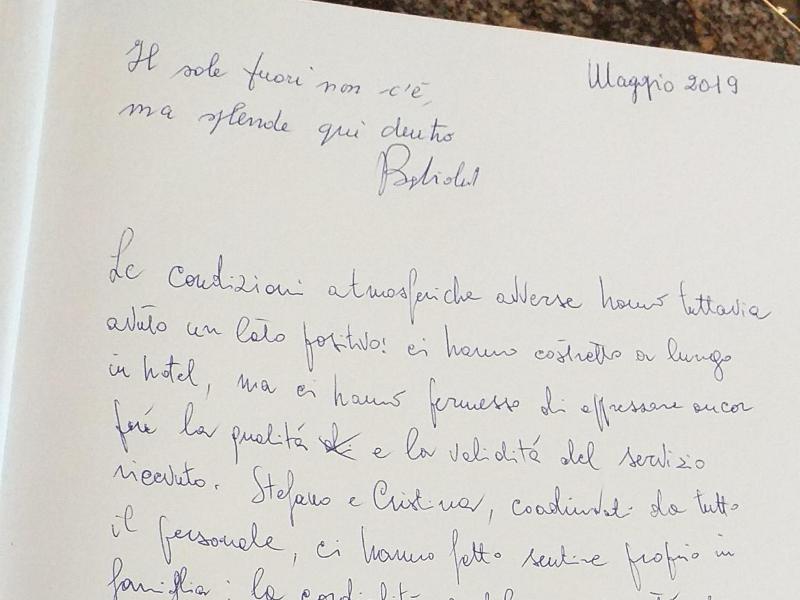 Il sole fuori non c'è,
Maggio 2019
ma splende qui dentro
Le condizioni atmosferiche avverse hanno tuttavia
avuto un lato positivo: ci hanno costretto a lungo
in hotel, ma ci hanno permesso di apprezzare ancor
più la qualità e la validità del servizio
ricevuto. Stefano e Cristina, coadiuvati da tutto
il personale, ci hanno fatto sentire proprio in
famiglia: la